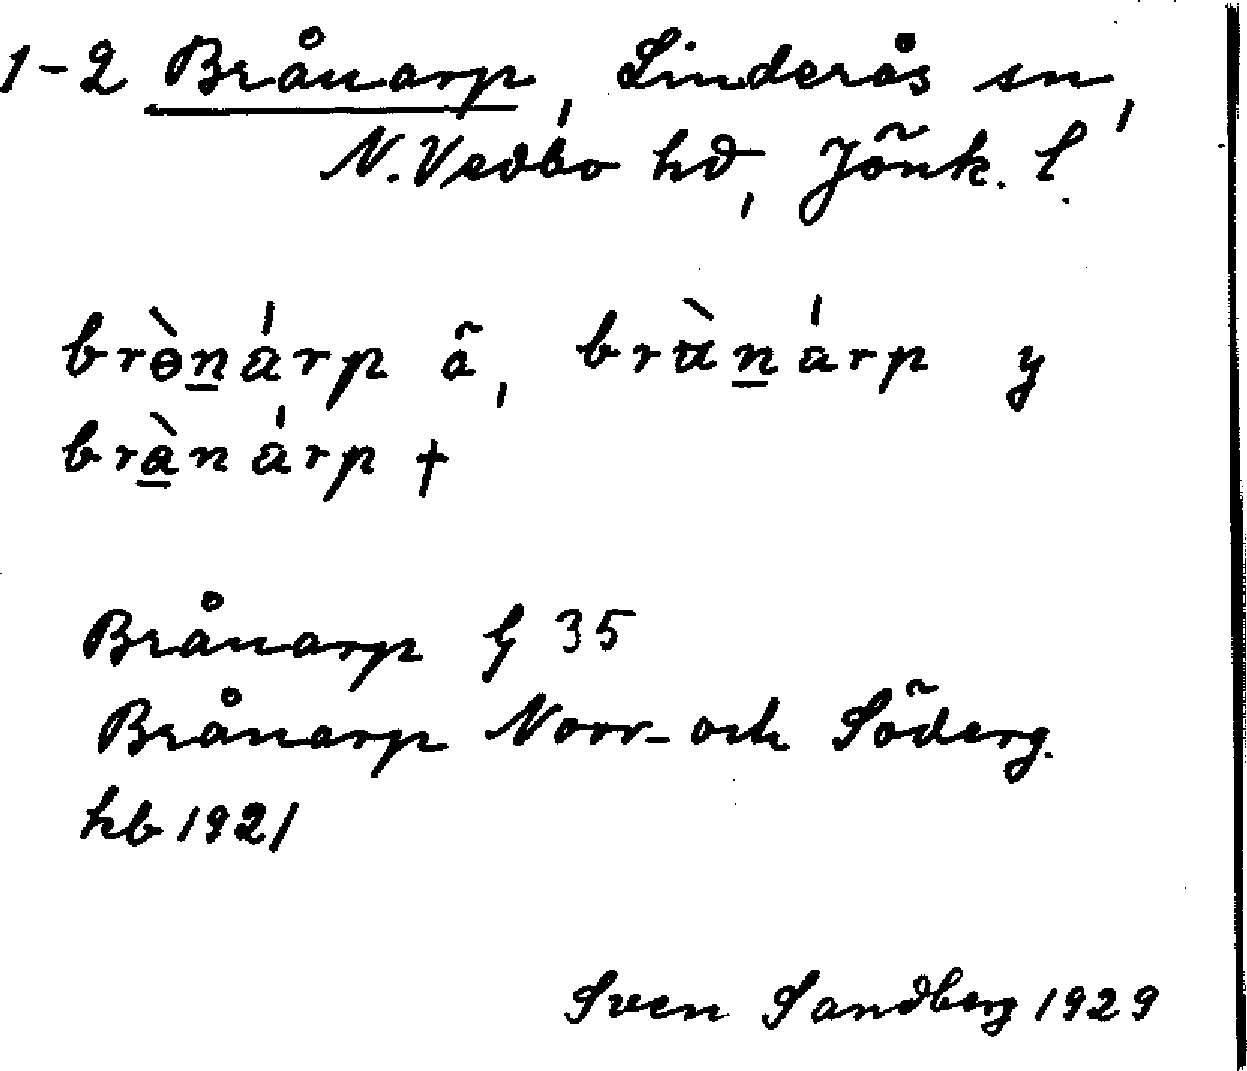 1-2 Brånarp, Linderås sn,
N. Vedbo hd, Jönk. l.
brɵ̀n̲árp ä, brʉ̀n̲árp y
brà̲nárp †
Brånarp G 35
Brånarp Norr- och Söderg.
hb 1921
Sven Sandberg 1929